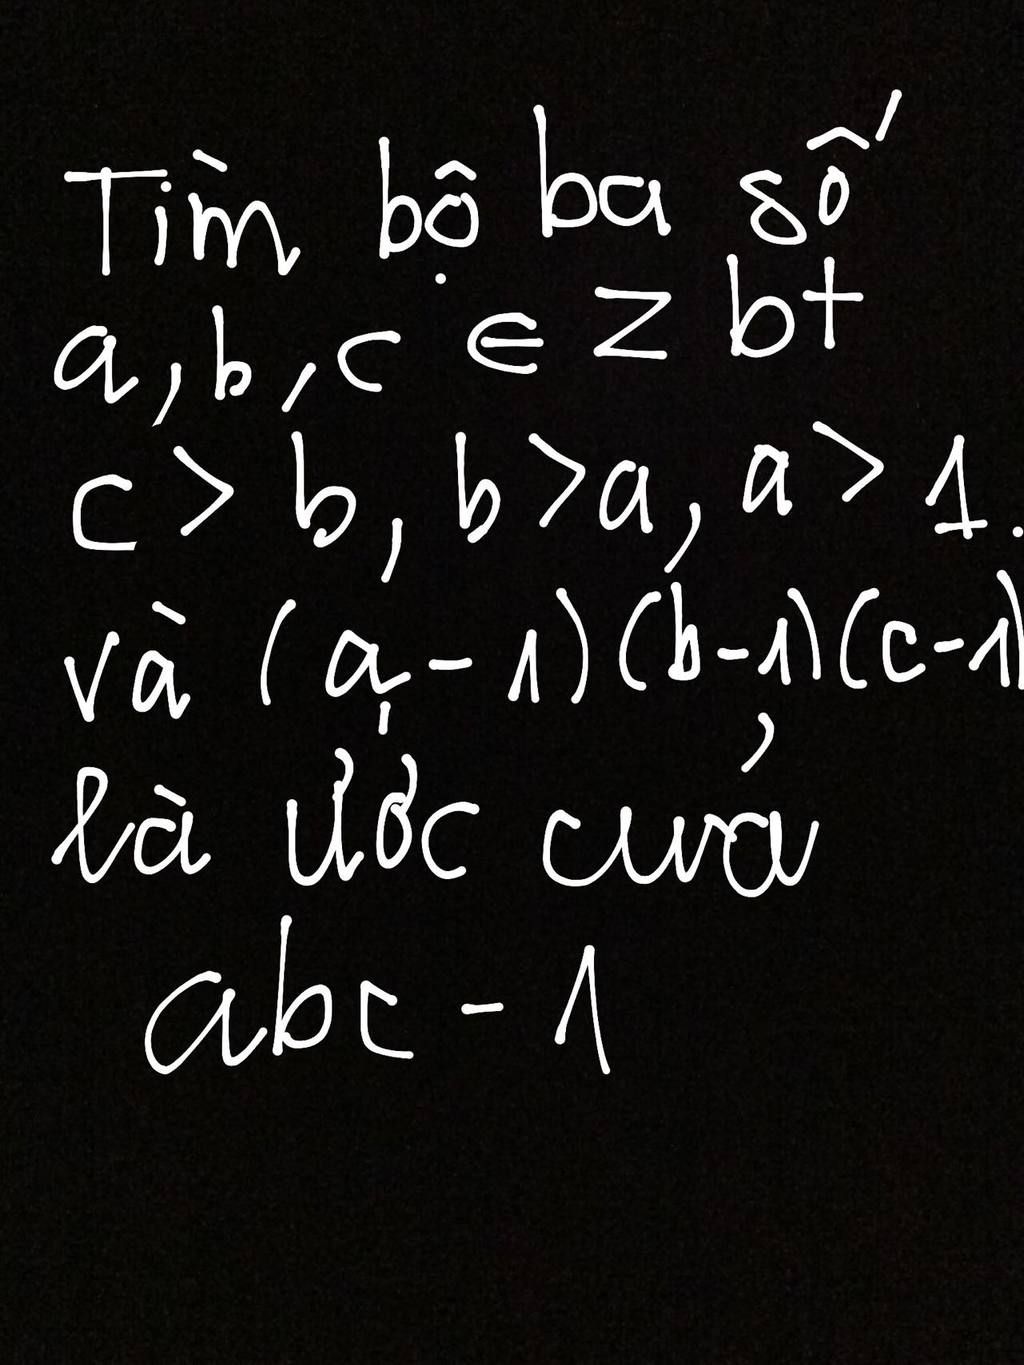 Tìm bộ ba số
a, b, c ∈ Z bt
c > b, b > a, a > 1.
và (a - 1)(b - 1)(c - 1)
là ước của
abc - 1